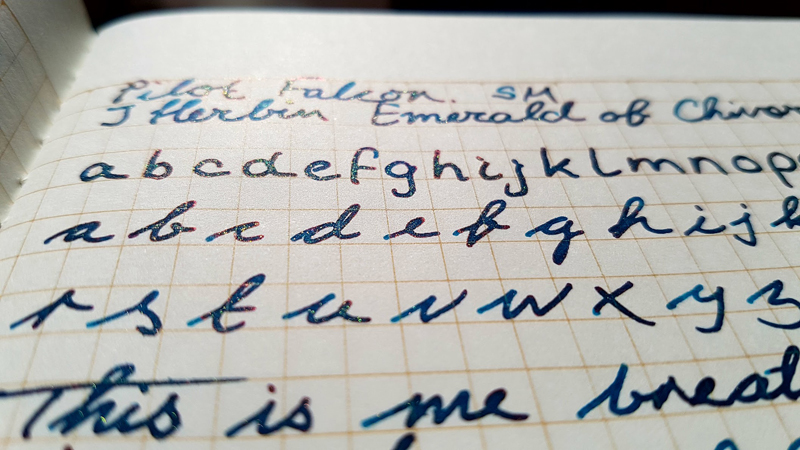 Pilot Falcon. SM
J Herbin Emerald of Chivor
a b c d e f g h i j k l m n o p
a b c d e f g h i j k
r s t u v w x y z
This is me